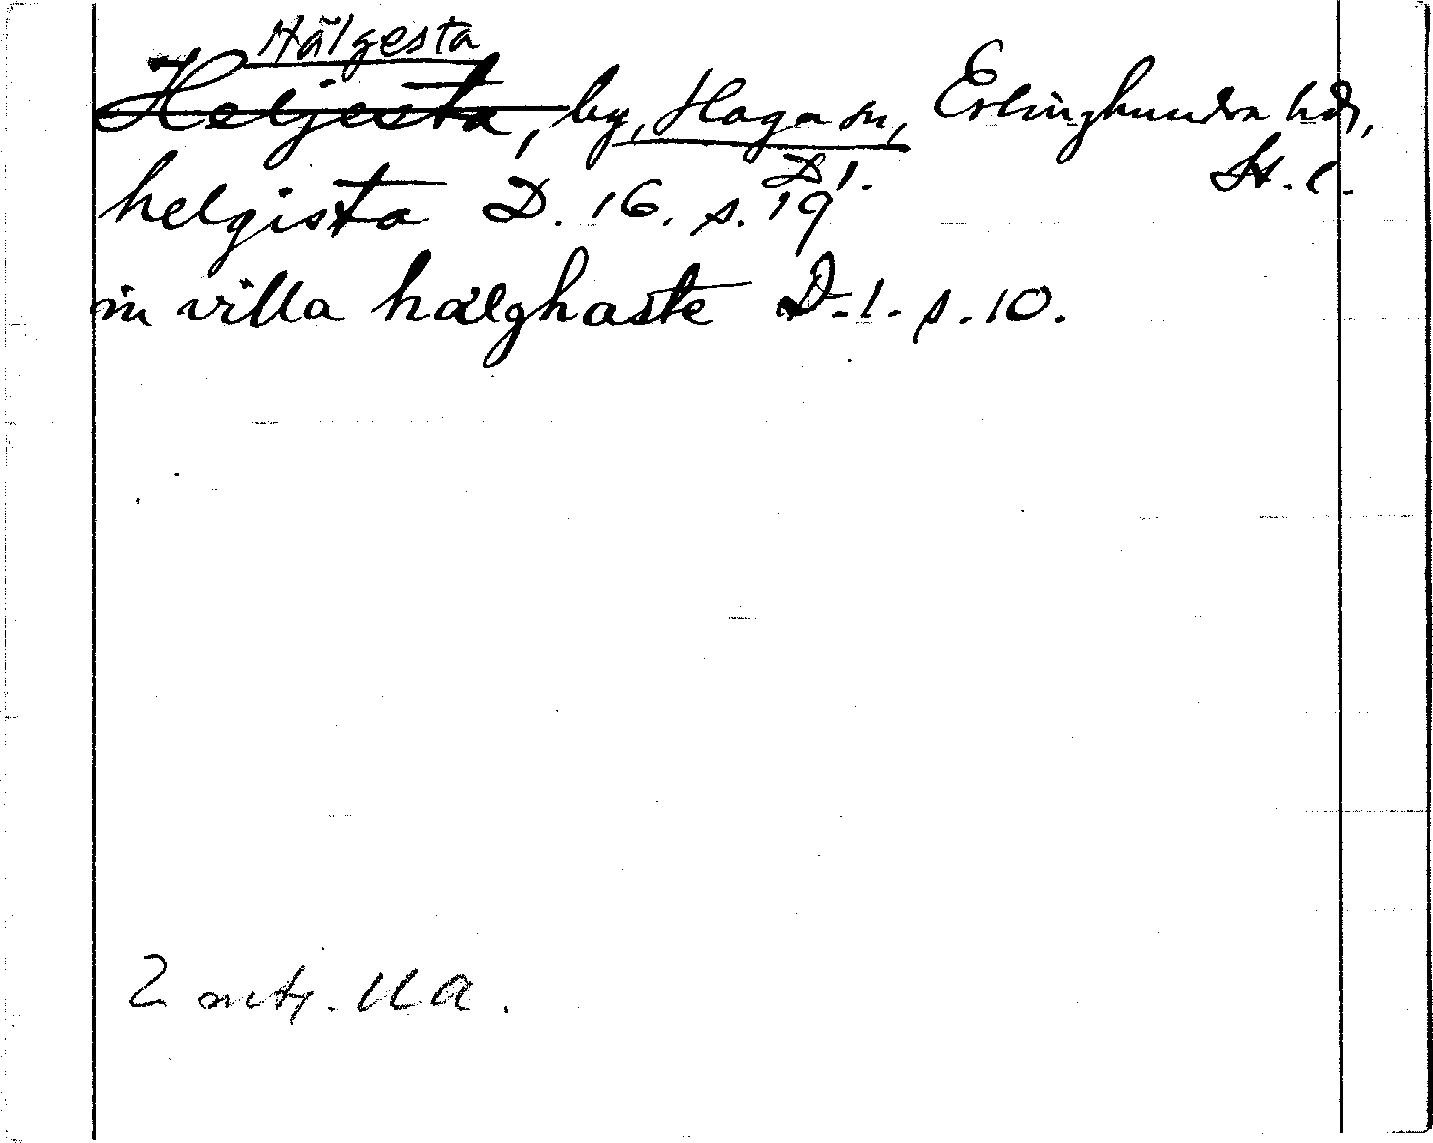 Hälgesta
Heljesta, by, Haga sn, Erlinghundra hd,
St. l.
helgista D. 16. s. 19
D 1.
in villa hælghaste D. 1. s. 10.
2 mtj. UA.